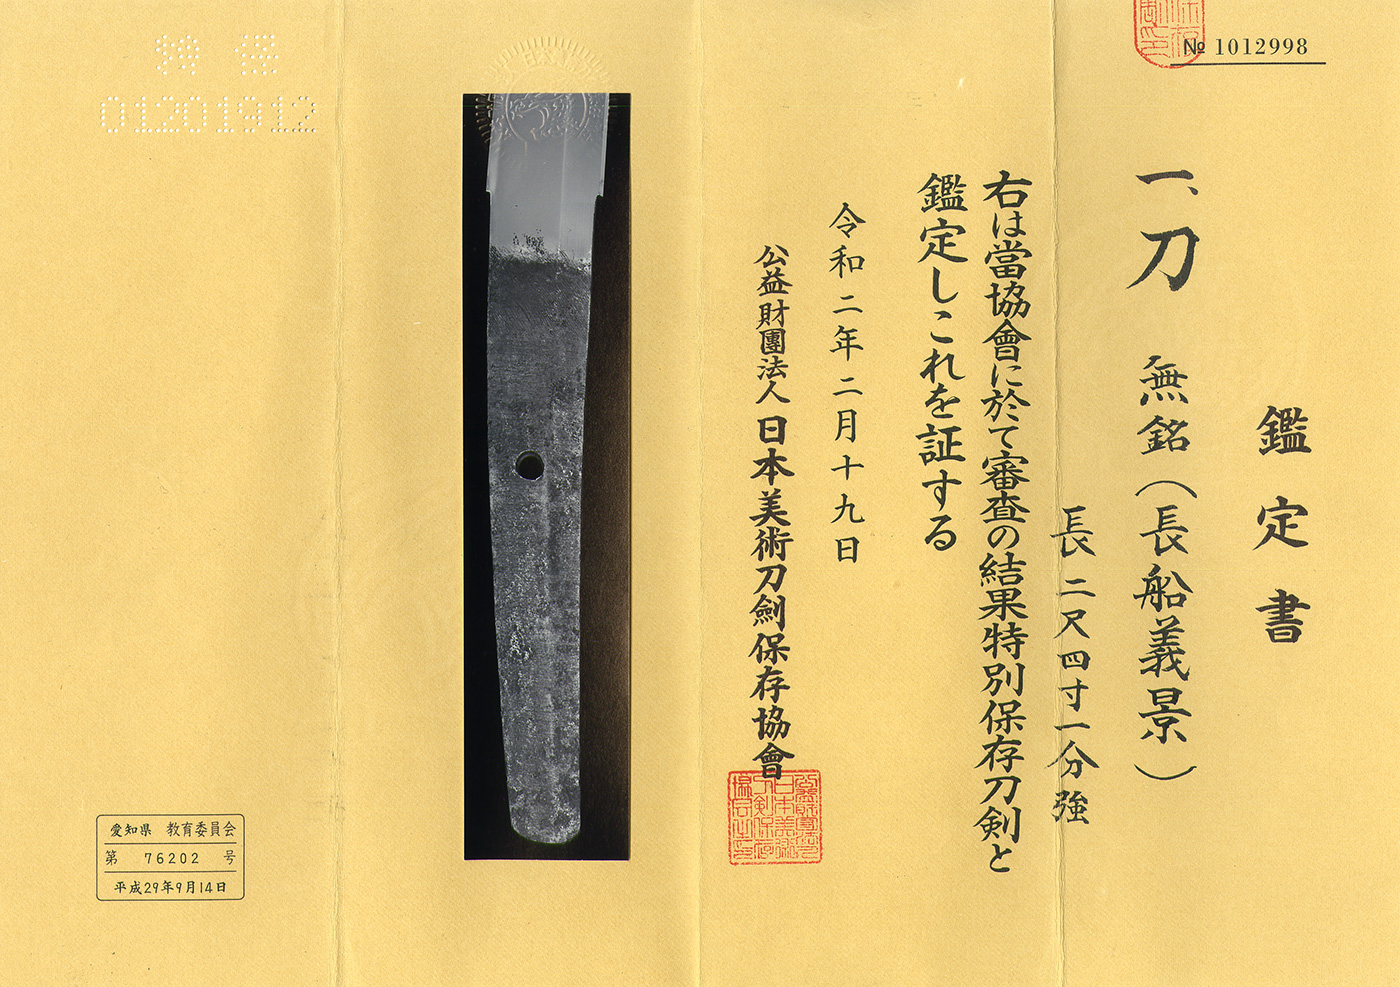 № 1012998
鑑定書
一、刀 無銘（長船義景）
長二尺四寸一分強
右は當協會に於て審査の結果特別保存刀剣と
鑑定しこれを証する
令和二年二月十九日
公益財團法人日本美術刀劍保存協會
特保
01201912
愛知県 教育委員会
第 76202 号
平成29年9月14日